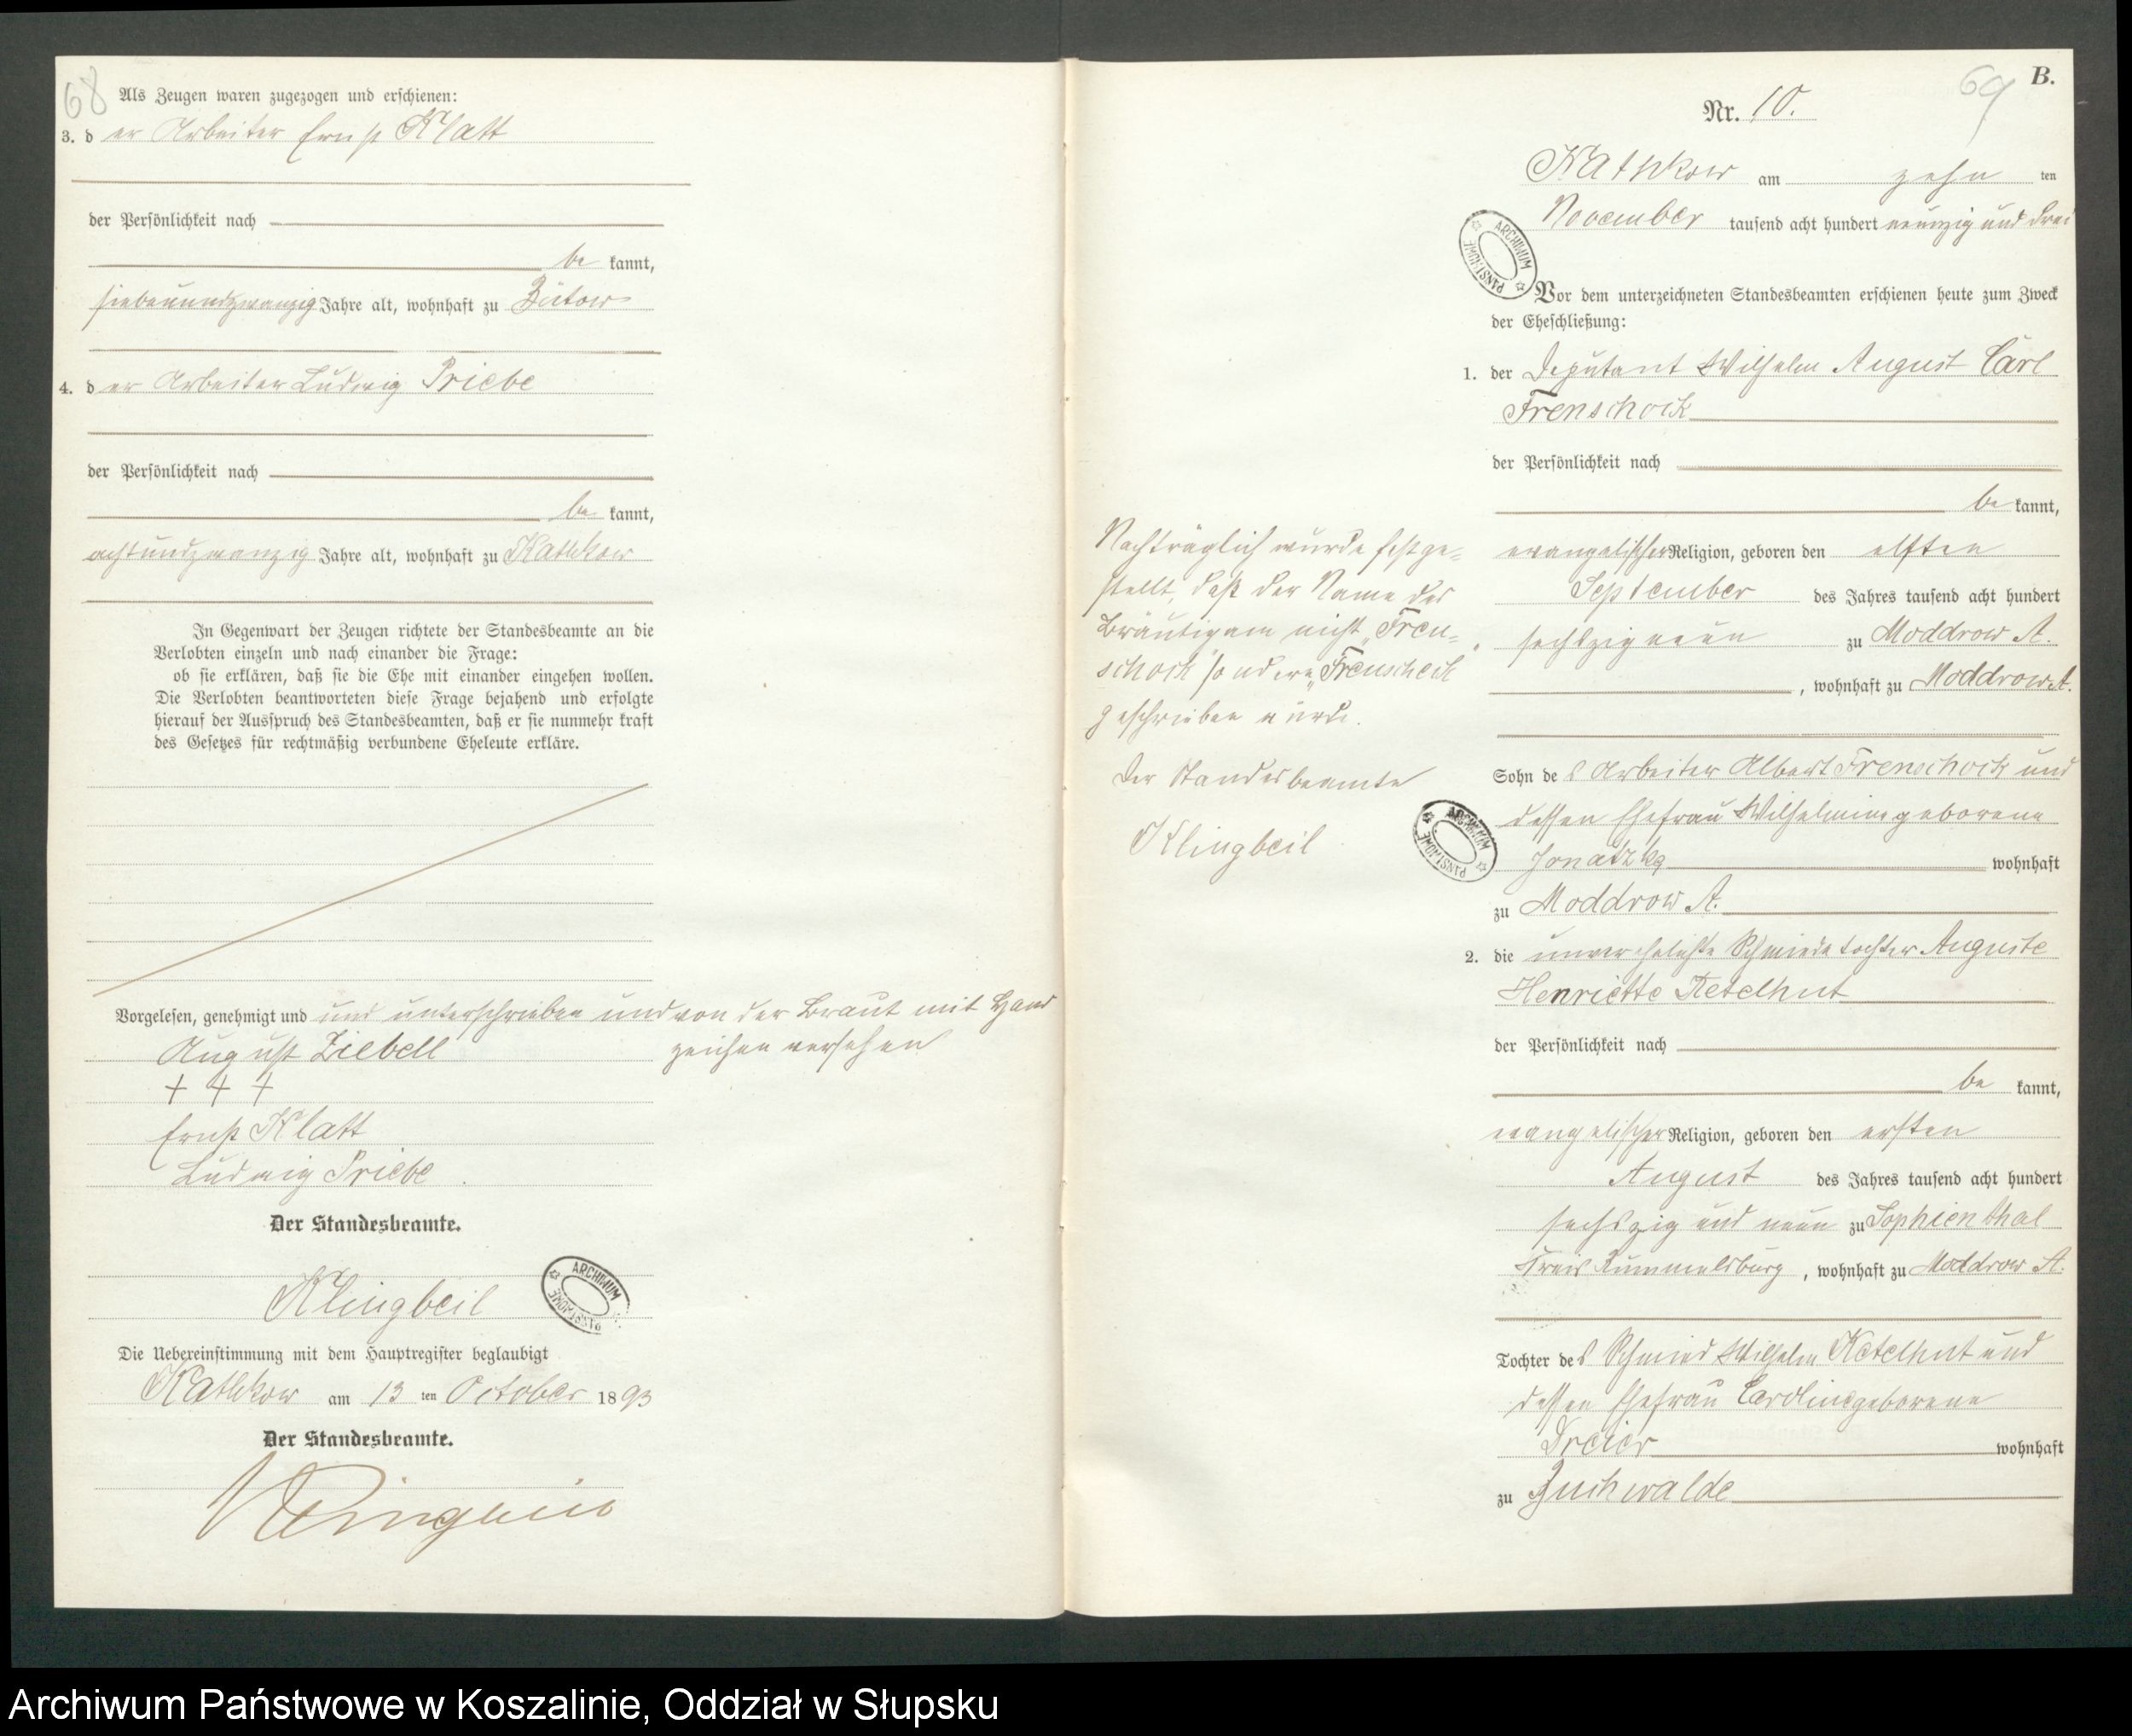 68
Als Zeugen waren zugezogen und erschienen:
3. d er Arbeiter Ernst Klatt
der Persönlichkeit nach
be kannt,
siebenundzwanzig Jahre alt, wohnhaft zu Bütow
4. d er Arbeiter Ludwig Priebe
der Persönlichkeit nach
be kannt,
achtundzwanzig Jahre alt, wohnhaft zu Kathkow
In Gegenwart der Zeugen richtete der Standesbeamte an die
Verlobten einzeln und nach einander die Frage:
ob sie erklären, daß sie die Ehe mit einander eingehen wollen.
Die Verlobten beantworteten diese Frage bejahend und erfolgte
hierauf der Ausspruch des Standesbeamten, daß er sie nunmehr kraft
des Gesetzes für rechtmäßig verbundene Eheleute erkläre.
Vorgelesen, genehmigt und und unterschrieben und von der Braut mit Hand
zeichen versehen
August Ziebell
+ + +
Ernst Klatt
Ludwig Priebe
Der Standesbeamte.
Klingbeil
ARCHIWUM PAŃSTWOWE
Die Uebereinstimmung mit dem Hauptregister beglaubigt
Kathkow am 13 ten October 1893
Der Standesbeamte.
Klingbeil
69
B.
Nr. 10.
Kathkow am zehn ten
November tausend acht hundert neunzig und drei
ARCHIWUM PAŃSTWOWE
Vor dem unterzeichneten Standesbeamten erschienen heute zum Zweck
der Eheschließung:
1. der Deputant Wilhelm August Carl
Frenschock
der Persönlichkeit nach
be kannt,
evangelischer Religion, geboren den elften
September des Jahres tausend acht hundert
sechszig neun zu Moddrow A.
, wohnhaft zu Moddrow A.
Sohn des Arbeiter Albert Frenschock und
dessen Ehefrau Wilhelmine geborene
Jonatzke wohnhaft
zu Moddrow A.
2. die unverehelichte Schmiedetochter Auguste
Henriette Ketelhut
der Persönlichkeit nach
be kannt,
evangelischer Religion, geboren den ersten
August des Jahres tausend acht hundert
sechszig und neun zu Sophienthal
Kreis Rummelsburg, wohnhaft zu Moddrow A.
Tochter des Schmied Wilhelm Ketelhut und
dessen Ehefrau Caroline geborene
Dreier wohnhaft
zu Buchwalde
Nachträglich wurde festge=
stellt, daß der Name des
Bräutigam nicht „Fren=
schock" sondern „Frenscheck"
geschrieben würde.
Der Standesbeamte
Klingbeil
ARCHIWUM PAŃSTWOWE
Archiwum Państwowe w Koszalinie, Oddział w Słupsku